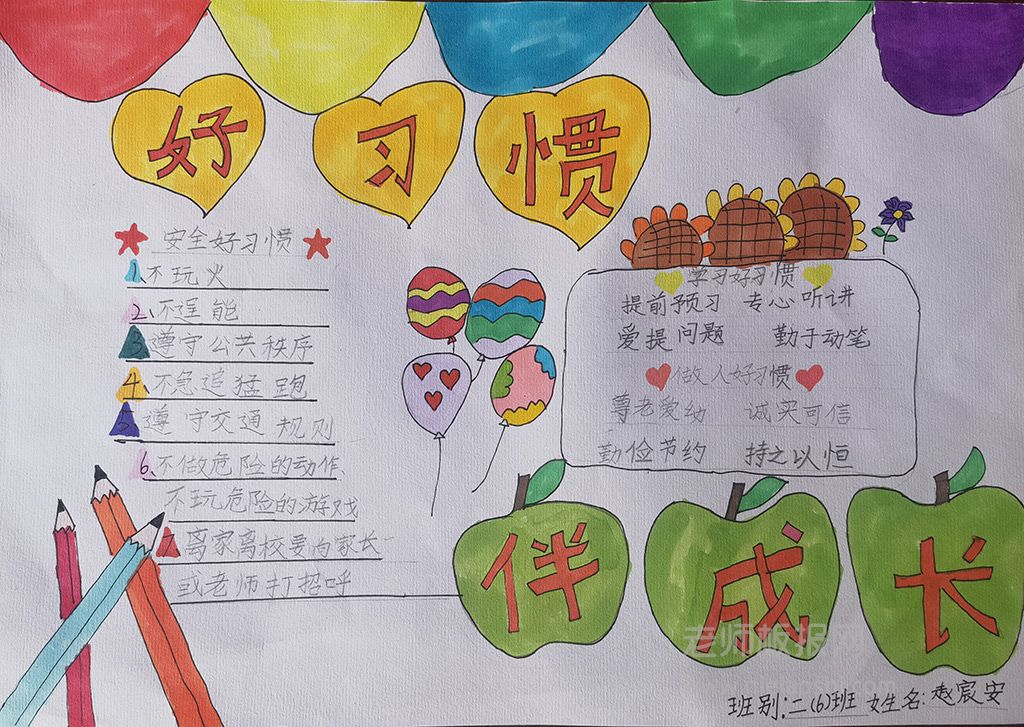 好习惯
安全好习惯
1、不玩火
2、不逞能
3、遵守公共秩序
4、不急追猛跑
5、遵守交通规则
6、不做危险的动作、
不玩危险的游戏
7、离家离校要向家长
或老师打招呼
学习好习惯
提前预习 专心听讲
爱提问题 勤于动笔
做人好习惯
尊老爱幼 诚实可信
勤俭节约 持之以恒
伴成长
老师板报网
班别:二(6)班 姓名:赵宸安